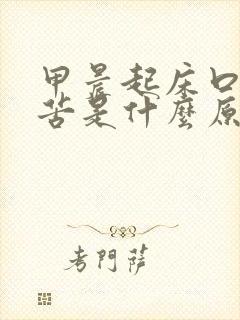 早晨起床口
苦是什麼原
考門薩